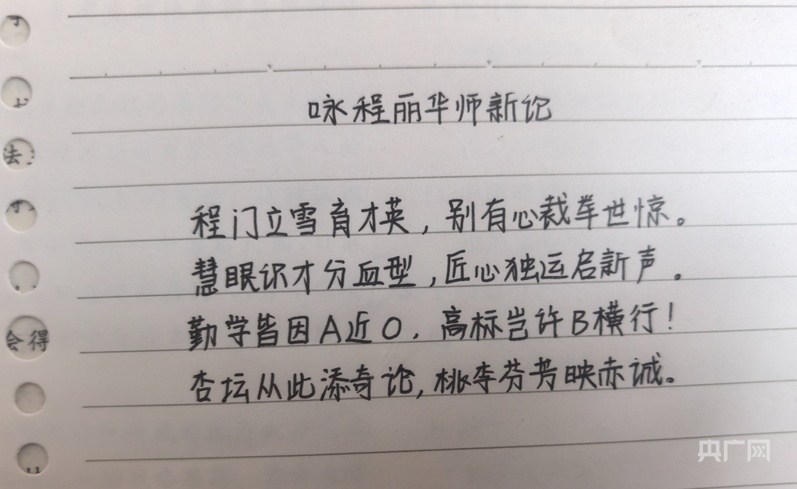 咏程丽华师新论
程门立雪育才英，别有心裁举世惊。
慧眼识才分血型，匠心独运启新声。
勤学皆因A近O，高标岂许B横行！
杏坛从此添奇论，桃李芬芳映赤诚。
去
会得
央广网